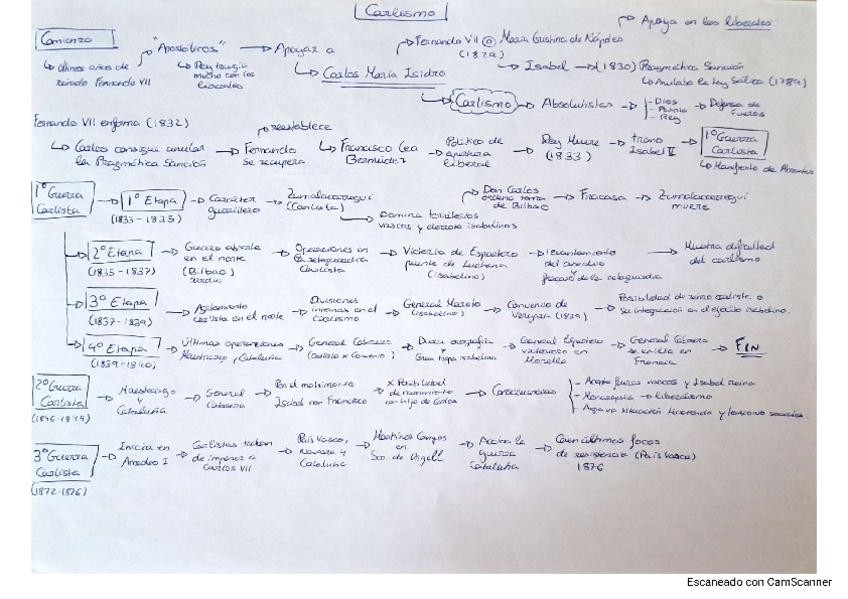 Carlismo
Apoya en los liberales
Comienzo
"Apostólicos" → Apoyar a
Fernando VII @ María Cristina de Nápoles
(1829)
últimos años de
reinado Fernando VII
Rey tenía
mucho con los
liberales
Carlos María Isidro
Isabel → (1830) Pragmática Sanción
Anulaba la Ley Sálica (1789)
Carlismo → Absolutistas →
- Dios
- Patria
- Rey
→ Defensa de
fueros
Fernando VII enferma (1832)
reestablece
Carlos consigue anular
la Pragmática Sanción
→ Fernando
se recupera
Francisco Cea
Bermúdez
→ Política de
apertura
liberal
→ Rey Muere
(1833)
→ trono
Isabel II
→ 1º Guerra
Carlista
Manifiesto de Abrantes
1º Guerra
Carlista
→ 1º Etapa
(1833-1835)
→ Carácter
guerrillero
→ Zumalacárregui
(Carlista)
Domina territorios
vascos y derrota isabelinos
Don Carlos
ordena toma
de Bilbao
→ Fracasa → Zumalacárregui
muere
2º Etapa
(1835-1837)
→ Guerra abierta
en el norte
(Bilbao)
→ Operaciones en
la retaguardia
Carlista
→ Victoria de Espartero
puente de Luchana
(isabelino)
→ levantamiento
del asedio
y
fracaso de la retaguardia
→ Muestra dificultad
del carlismo
3º Etapa
(1837-1839)
→ Agotamiento
carlista en el norte
→ Divisiones
internas en el
carlismo
→ General Maroto
(isabelino)
→ Convenio de
Vergara (1839)
→ Posibilidad de
su integración en el ejército isabelino.
4º Etapa
(1839-1840)
→ Últimas operaciones
Maestrazgo, Cataluña
→ General Cabrera
(Carlista x Convenio)
→ Dura orografía
y
Gran tropa isabelina
→ General Espartero
Morella
→ General Cabrera
se exilia en
Francia
→ FIN
2º Guerra
Carlista
(1846-1849)
→ Maestrazgo
y
Cataluña
→ General
Cabrera
→ Por el matrimonio
Isabel con Francisco
x Posibilidad
de
con hijo de Carlos
→ Consecuencias
- Acepta fueros vascos y Isabel reina
- Monarquía → liberalismo
- situación Hacienda y tensiones sociales
3º Guerra
Carlista
(1872-1876)
→ Inicia en
Amadeo I
→ Carlistas tratan
de imponer a
Carlos VII
→ País Vasco,
Navarra y
Cataluña
→ Martínez Campos
en
Seo de Urgell
→ Acaba la
guerra
Cataluña
→ Caen últimos focos
de resistencia (País Vasco)
1876
Escaneado con CamScanner